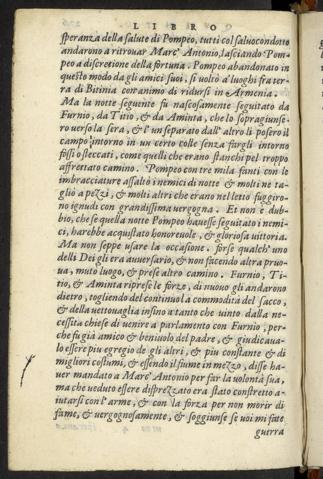 LIBRO
speranza della salute di Pompeo, tutti col saluocondotto
andarono a ritrouar Marc' Antonio, lasciando Pom-
peo a discretione della fortuna. Pompeo abandonato in
questo modo da gli amici suoi, si uoltò a luoghi fra ter-
ra di Bitinia con animo di ridursi in Armenia.
Ma la notte seguente fu nascosamente seguitato da
Furnio, da Titio, & da Aminta, che lo sopragiunse-
ro uerso la sera, & l'un separato dall' altro li posero il
campo intorno in un certo colle senza fargli intorno
fossi o steccati, come quelli che erano stanchi pel troppo
affrettato camino. Pompeo con tre mila fanti con le
imbracciature assaltò i nemici di notte & molti ne ta-
gliò a pezzi, & molti altri che erano nel letto fuggiro-
no ignudi con grandissima uergogna. Et non è dub-
bio, che se quella notte Pompeo hauesse seguitato i nemi-
ci, harebbe acquistato honoreuole, & gloriosa uittoria.
Ma non seppe usare la occasione. forse qualch' uno
delli Dei gli era auuersario, & non facendo altra pruo-
ua, mutò luogo, & prese altro camino. Furnio, Ti-
tio, & Aminta riprese le forze, di nuouo gli andarono
dietro, togliendo del continuo la commodità del sacco,
& della uettouaglia insino a tanto che uinto dalla ne-
cessità chiese di uenire a parlamento con Furnio, per-
che fu già amico & beniuolo del padre, & giudicaua-
lo essere piu egregio de gli altri, & piu constante & di
migliori costumi, & essendo il fiume in mezzo, disse ha-
uer mandato a Marc' Antonio per far la uolontà sua,
ma che ueduto essere disprezzato era stato constretto a-
iutarsi con l'arme, & con la forza per non morir di
fame, & uergognosamente, & soggiunse se uoi mi fate
guerra